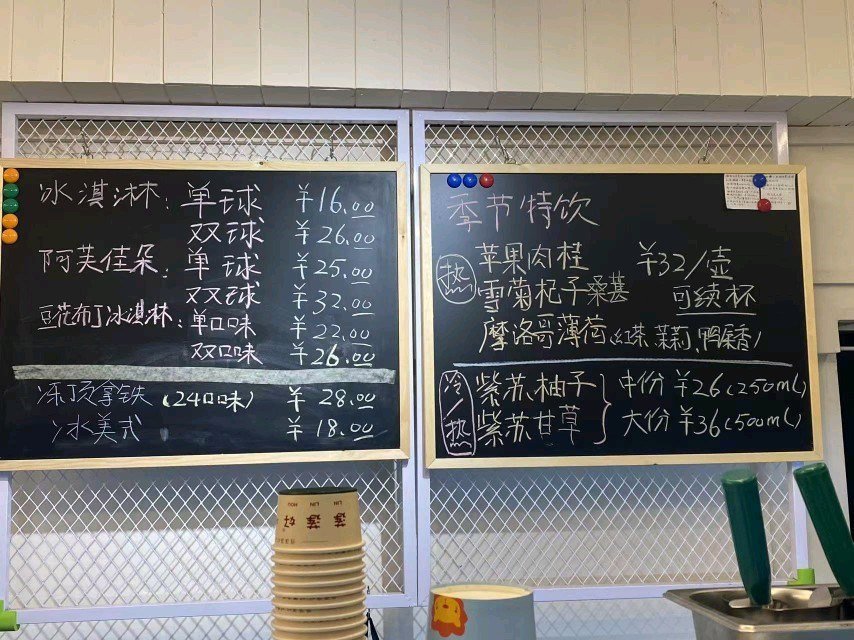 冰淇淋：单球 ￥16.00
双球 ￥26.00
阿芙佳朵：单球 ￥25.00
双球 ￥32.00
豆花布丁冰淇淋：单口味 ￥22.00
双口味 ￥26.00
冻顶拿铁（24口味） ￥28.00
冰美式 ￥18.00
季节特饮
热 苹果肉桂 ￥32/壶
雪菊杞子桑葚 可续杯
摩洛哥薄荷（红茶、茉莉、鸭屎香）
冷/热 紫苏、柚子 中份￥26（250mL）
紫苏甘草 大份￥36（500mL）
LIN LIN
好 莲 莲